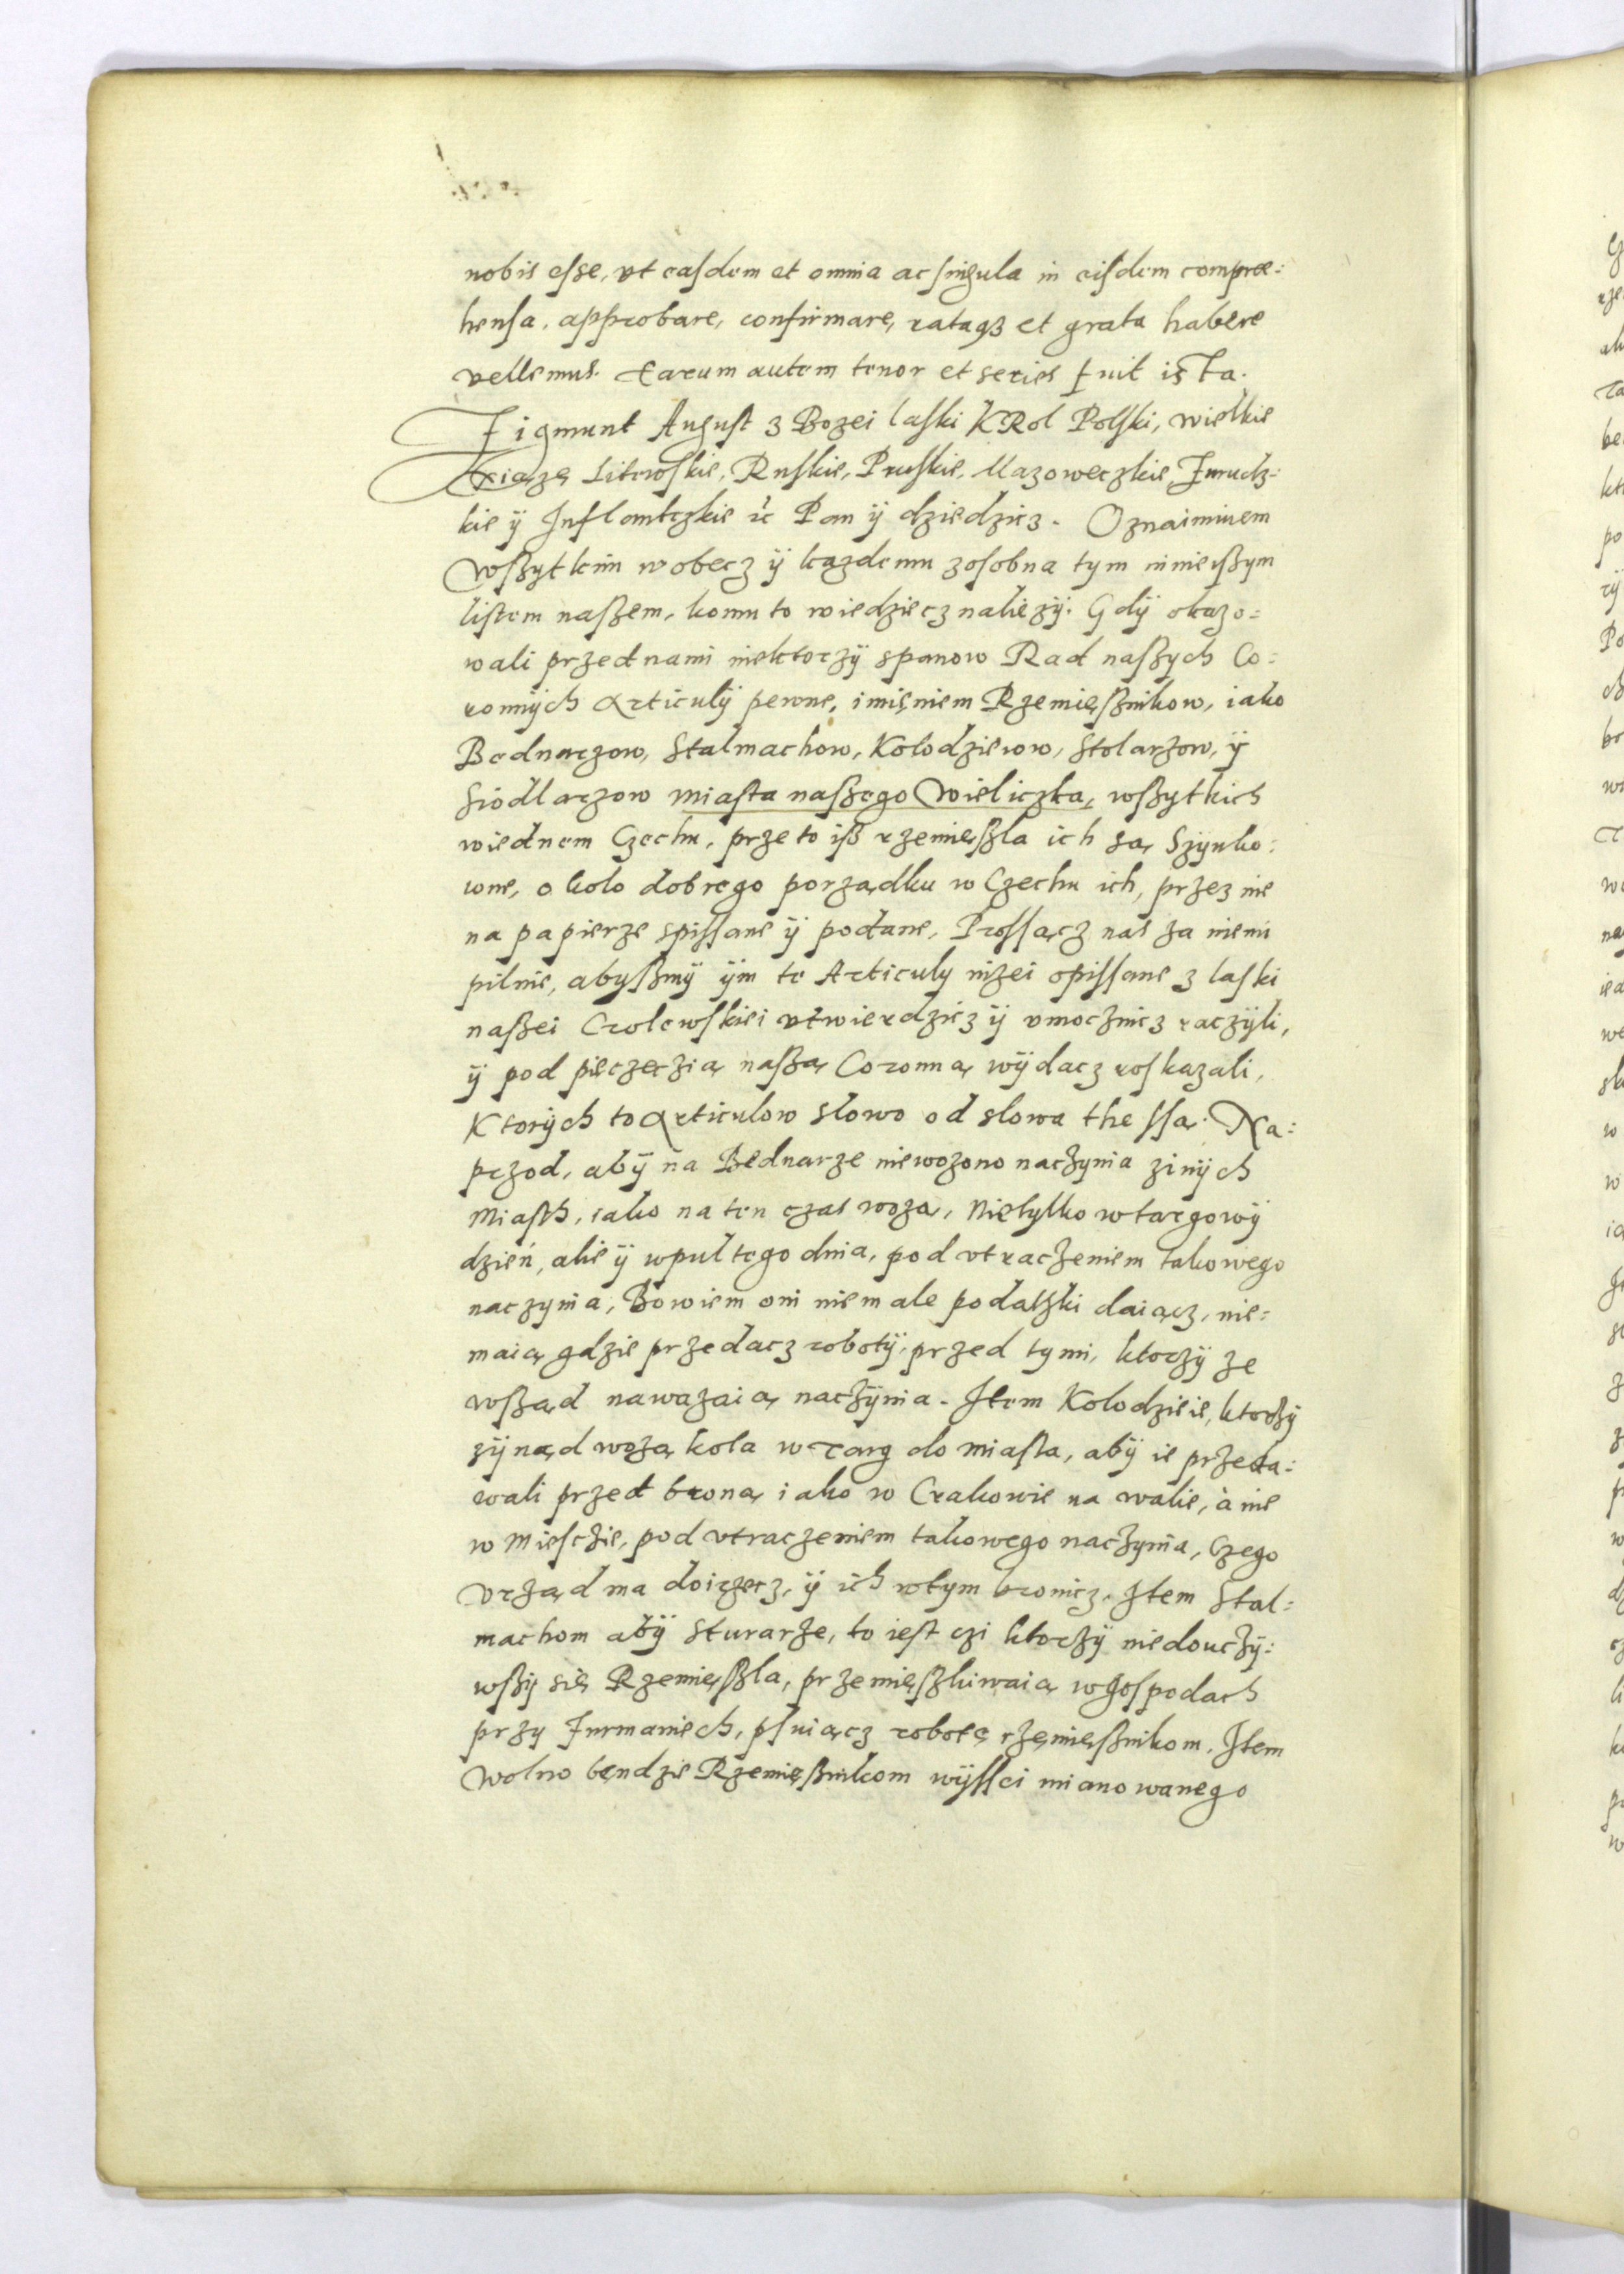 nobis esse, vt easdem et omnia ac singula in eisdem compræ:
hensa, approbare, confirmare, rataqз et grata habere
vellemus. Earum autem tenor et series fuit ista.
Zigmunt August z Bozei laski KRol Polski, wielkie
Xiąze Litewskie, Ruskie, Pruskie, Mazoweczkie, Zmudz:
kie ÿ Inflantczkie ꝛc Pan ÿ dziedzicz. Oznaimiuem
Wßytkim wobecz ÿ kazdemu zosobna tym ninieißym
listem naßem, komu to wiedziecz nalieżÿ. Gdÿ okazo=
wali przed nami niektorzÿ spanow Rad naßych Co=
ronnÿch Articulÿ pewne, imięniem Rzemięßnikow, iako
Bednarzow, Stalmachow, Kolodzieiow, Stolarzow, ÿ
Siodlarzow miasta naßego Wieliczka, wßytkich
wiednem Czechu, przeto iß rzemięßla ich są Szynko:
wne, okolo dobrego porządku w Czechu ich, przez nie
na papierze spissane ÿ podane, Prossącz nas za niemi
pilnie, abyßmÿ ÿm te Articuly niżei opissane z laski
naßei Crolewskiei vtwierdzicz ÿ vmocznicz raczÿli,
ÿ pod pieczęczią naßą Coronną wÿdacz roskazali,
Ktorÿch to Articulow slowo od slowa the ssą. Na:
przod, abÿ na Bednarze niewożono naczynia zinÿch
Miasth, iako na ten czas wożą, Nietylko wtargowÿ
dzień, alie ÿ wpul tego dnia, pod vtraczeniem takowego
naczynia, Bowiem oni niemale podatzki daiącz, nie=
maią gdzie przedacz robotÿ, przed tymi, ktorzÿ ze
wßąd nawaząią naczÿnia. Item Kolodzieie, ktorzÿ
zÿnąd wożą kola w Targ do miasta, abÿ ie przeda:
wali przed broną iako w Crakowie na walie, à nie
w Miesczie, pod vtraczeniem takowego naczynia, Czego
Vrząd ma doirzecz, ÿ ich wtym bronicz. Item Stal=
machom abÿ Sturarze, to iest czi ktorzÿ niedouczÿ:
wßÿ się Rzemięßla, przemięßkiwaią wgospodach
przy Furmaniech, psuiącz robotę rzęmięßnikom. Item
Wolno bęndzie Rzemięßnikom wÿßßei mianowanego